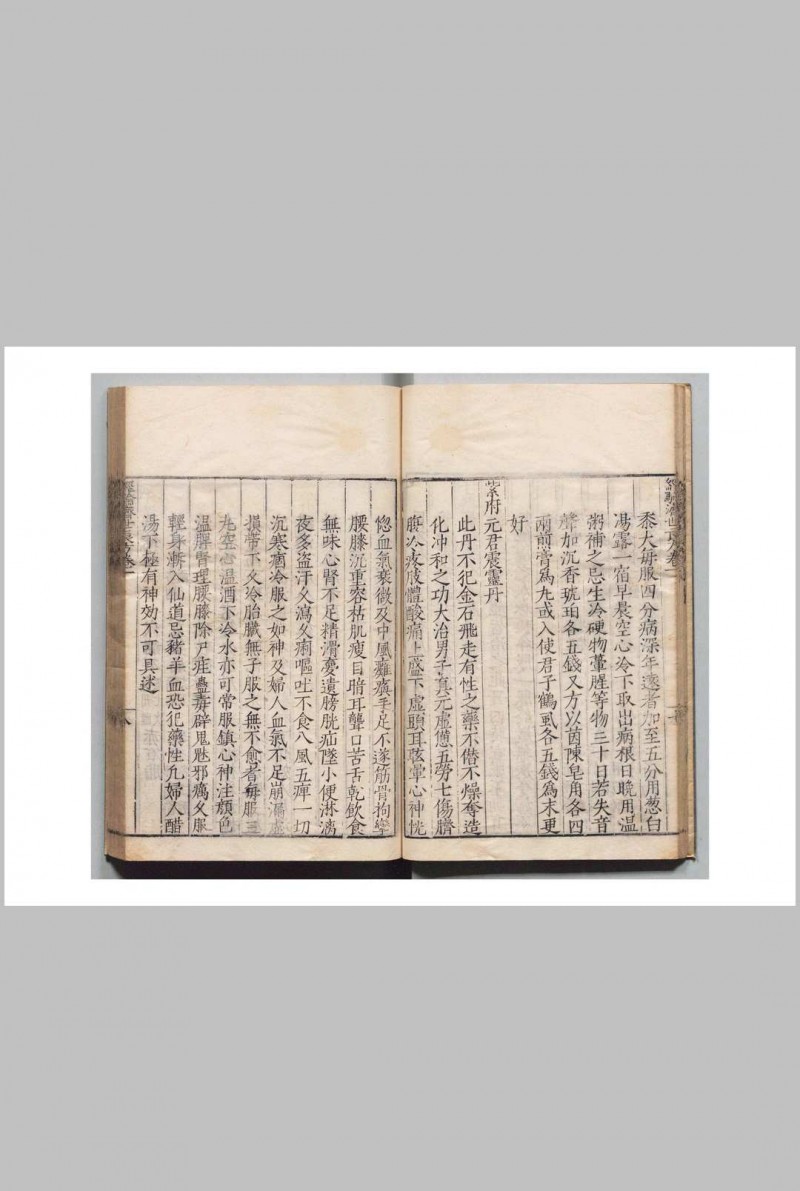 經驗濟世良方卷一
黍大每服四分病深年遠者加至五分用葱白
湯露一宿早晨空心冷下取出病根日晚用温
粥補之忌生冷硬物葷腥等物三十日若失音
聲加沉香琥珀各五錢又方以茵陳皂角各四
兩煎膏為丸或入使君子鶴虱各五錢為末更
好
紫府元君震靈丹
此丹不犯金石飛走有性之藥不僭不燥奪造
化冲和之功大治男子真元虚憊五勞七傷臍
腹冷疼肢體酸痛上盛下虚頭耳眩暈心神恍
惚血氣衰微及中風癱瘓手足不遂筋骨拘攣
腰膝沉重容枯肌瘦目暗耳聾口苦舌乾飲食
無味心腎不足精滑憂遺膀胱疝墜小便淋漓
夜多盗汗久瀉久痢嘔吐不食八風五痺一切
沉寒痼冷服之如神及婦人血氣不足崩漏虚
損帶下久冷胎臓無子服之無不愈者每服三
丸空心温酒下冷水亦可常服鎮心神注顔色
温脾腎理腰膝除尸疰蠱毒辟鬼魅邪癘久服
輕身漸入仙道忌猪羊血恐犯藥性凢婦人醋
湯下極有神効不可具述
經驗濟世良方卷一